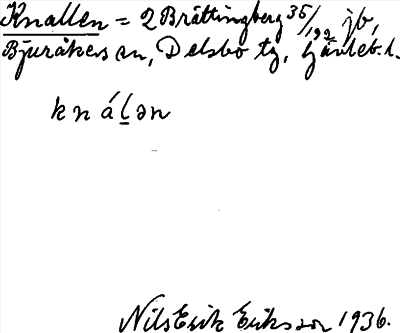 Knallen = 2 Brättingberg 35/192 jb,
Bjuråkers sn, Delsbo tg, Gävleb. l.
k n á l̲ ə n
Nils Erik Eriksson 1936.